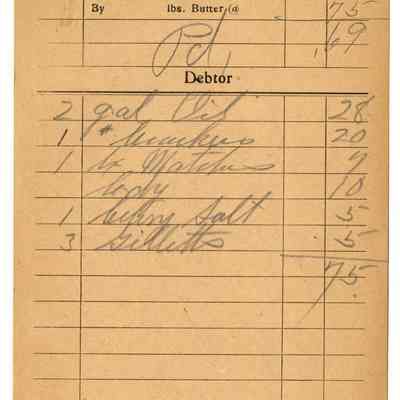 By lbs. Butter @ 75
69
Pd
Debtor
2 gal Oil 28
1 # Crackers 20
1 bx Matches 7
10
1 Salt 5
3 Gilletts 5
75